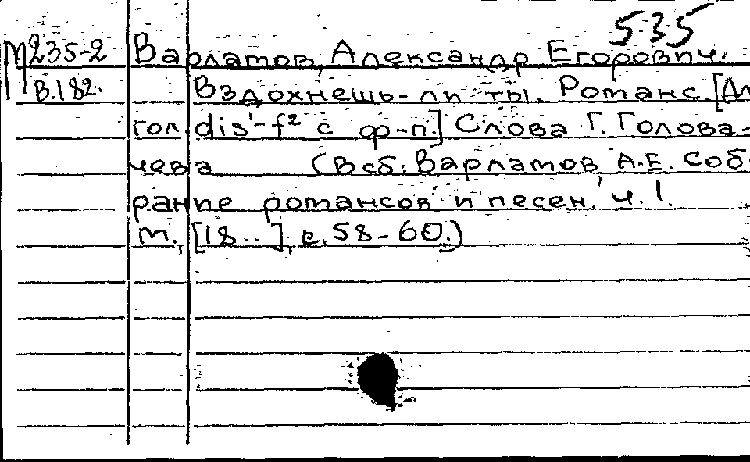 535
М235-2 Варламов, Александр Егорович.
В.182. Вздохнешь-ли ты. Романс. [Дл
гол. dis'-f² с ф-п.] Слова Г. Голова-
чева (В сб: Варламов А.Е. Соб
рание романсов и песен, ч. 1.
М., [18..], с. 58-60.)